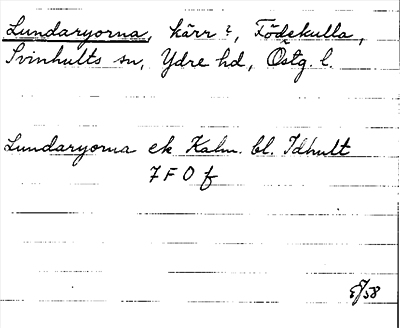 Lundaryorna, kärr?, Födekulla,
Svinhults sn, Ydre hd, Östg. l.
Lundaryorna ek Kalm. bl. Idhult
7 F 0 f
58